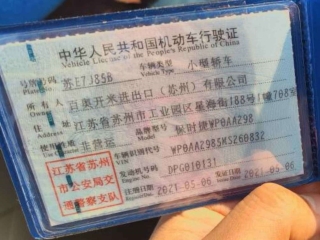 中华人民共和国机动车行驶证
Vehicle License of the People's Republic of China
号牌号码 苏E7J85B 车辆类型 小型轿车
Plate No. Vehicle Type
所有人 百奥开米进出口（苏州）有限公司
Owner
住址 江苏省苏州市工业园区星海街188号1幢708室
Address
使用性质 非营运 品牌型号 保时捷WP0AA298
车辆识别代号 WP0AA2985MS260832
江苏省苏州 发动机号码 DPG010131
市公安局交 注册日期 2021-05-06 发证日期 2021-05-06
通警察支队